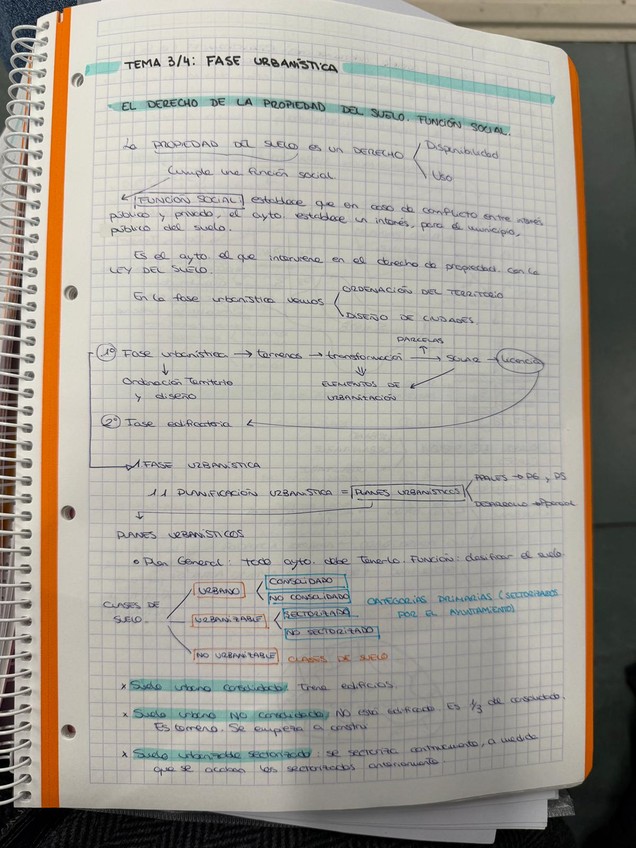 TEMA 3/4: FASE URBANÍSTICA
EL DERECHO DE LA PROPIEDAD DEL SUELO. FUNCIÓN SOCIAL.
La PROPIEDAD DEL SUELO ES UN DERECHO
Disponibilidad
Uso
Cumple una función social
FUNCIÓN SOCIAL: establece que en caso de conflicto entre interés
público y privado, el ayto. establece un interés, para el municipio,
público del suelo.
Es el ayto. el que interviene en el derecho de propiedad. con la
LEY DEL SUELO.
En la fase urbanística vemos
ORDENACIÓN DEL TERRITORIO
DISEÑO DE CIUDADES.
PARCELAS
1º Fase urbanística → terrenos → transformación → SOLAR → Licencia
Ordenación Territorio
y diseño
ELEMENTOS DE
URBANIZACIÓN
2º Fase edificatoria
1. FASE URBANÍSTICA
1.1 PLANIFICACIÓN URBANÍSTICA = PLANES URBANÍSTICOS
→ PG, PS
DESARROLLO → Parcial
PLANES URBANÍSTICOS
Plan General: todo ayto. debe tenerlo. FUNCIÓN: clasificar el suelo.
CLASES DE
SUELO.
URBANO
CONSOLIDADO
NO CONSOLIDADO
URBANIZABLE
SECTORIZADO
NO SECTORIZADO
CATEGORÍAS PRIMARIAS (SECTORIZADOS
POR EL AYUNTAMIENTO)
NO URBANIZABLE
CLASES DE SUELO
x Suelo urbano consolidado: Tiene edificios.
x Suelo urbano NO consolidado: NO está edificado. Es 1/3 de consolidado.
Es terreno. Se empieza a constru
x Suelo urbanizable sectorizado: se sectoriza continuamente, a medida
que se acaban los sectorizados anteriormente